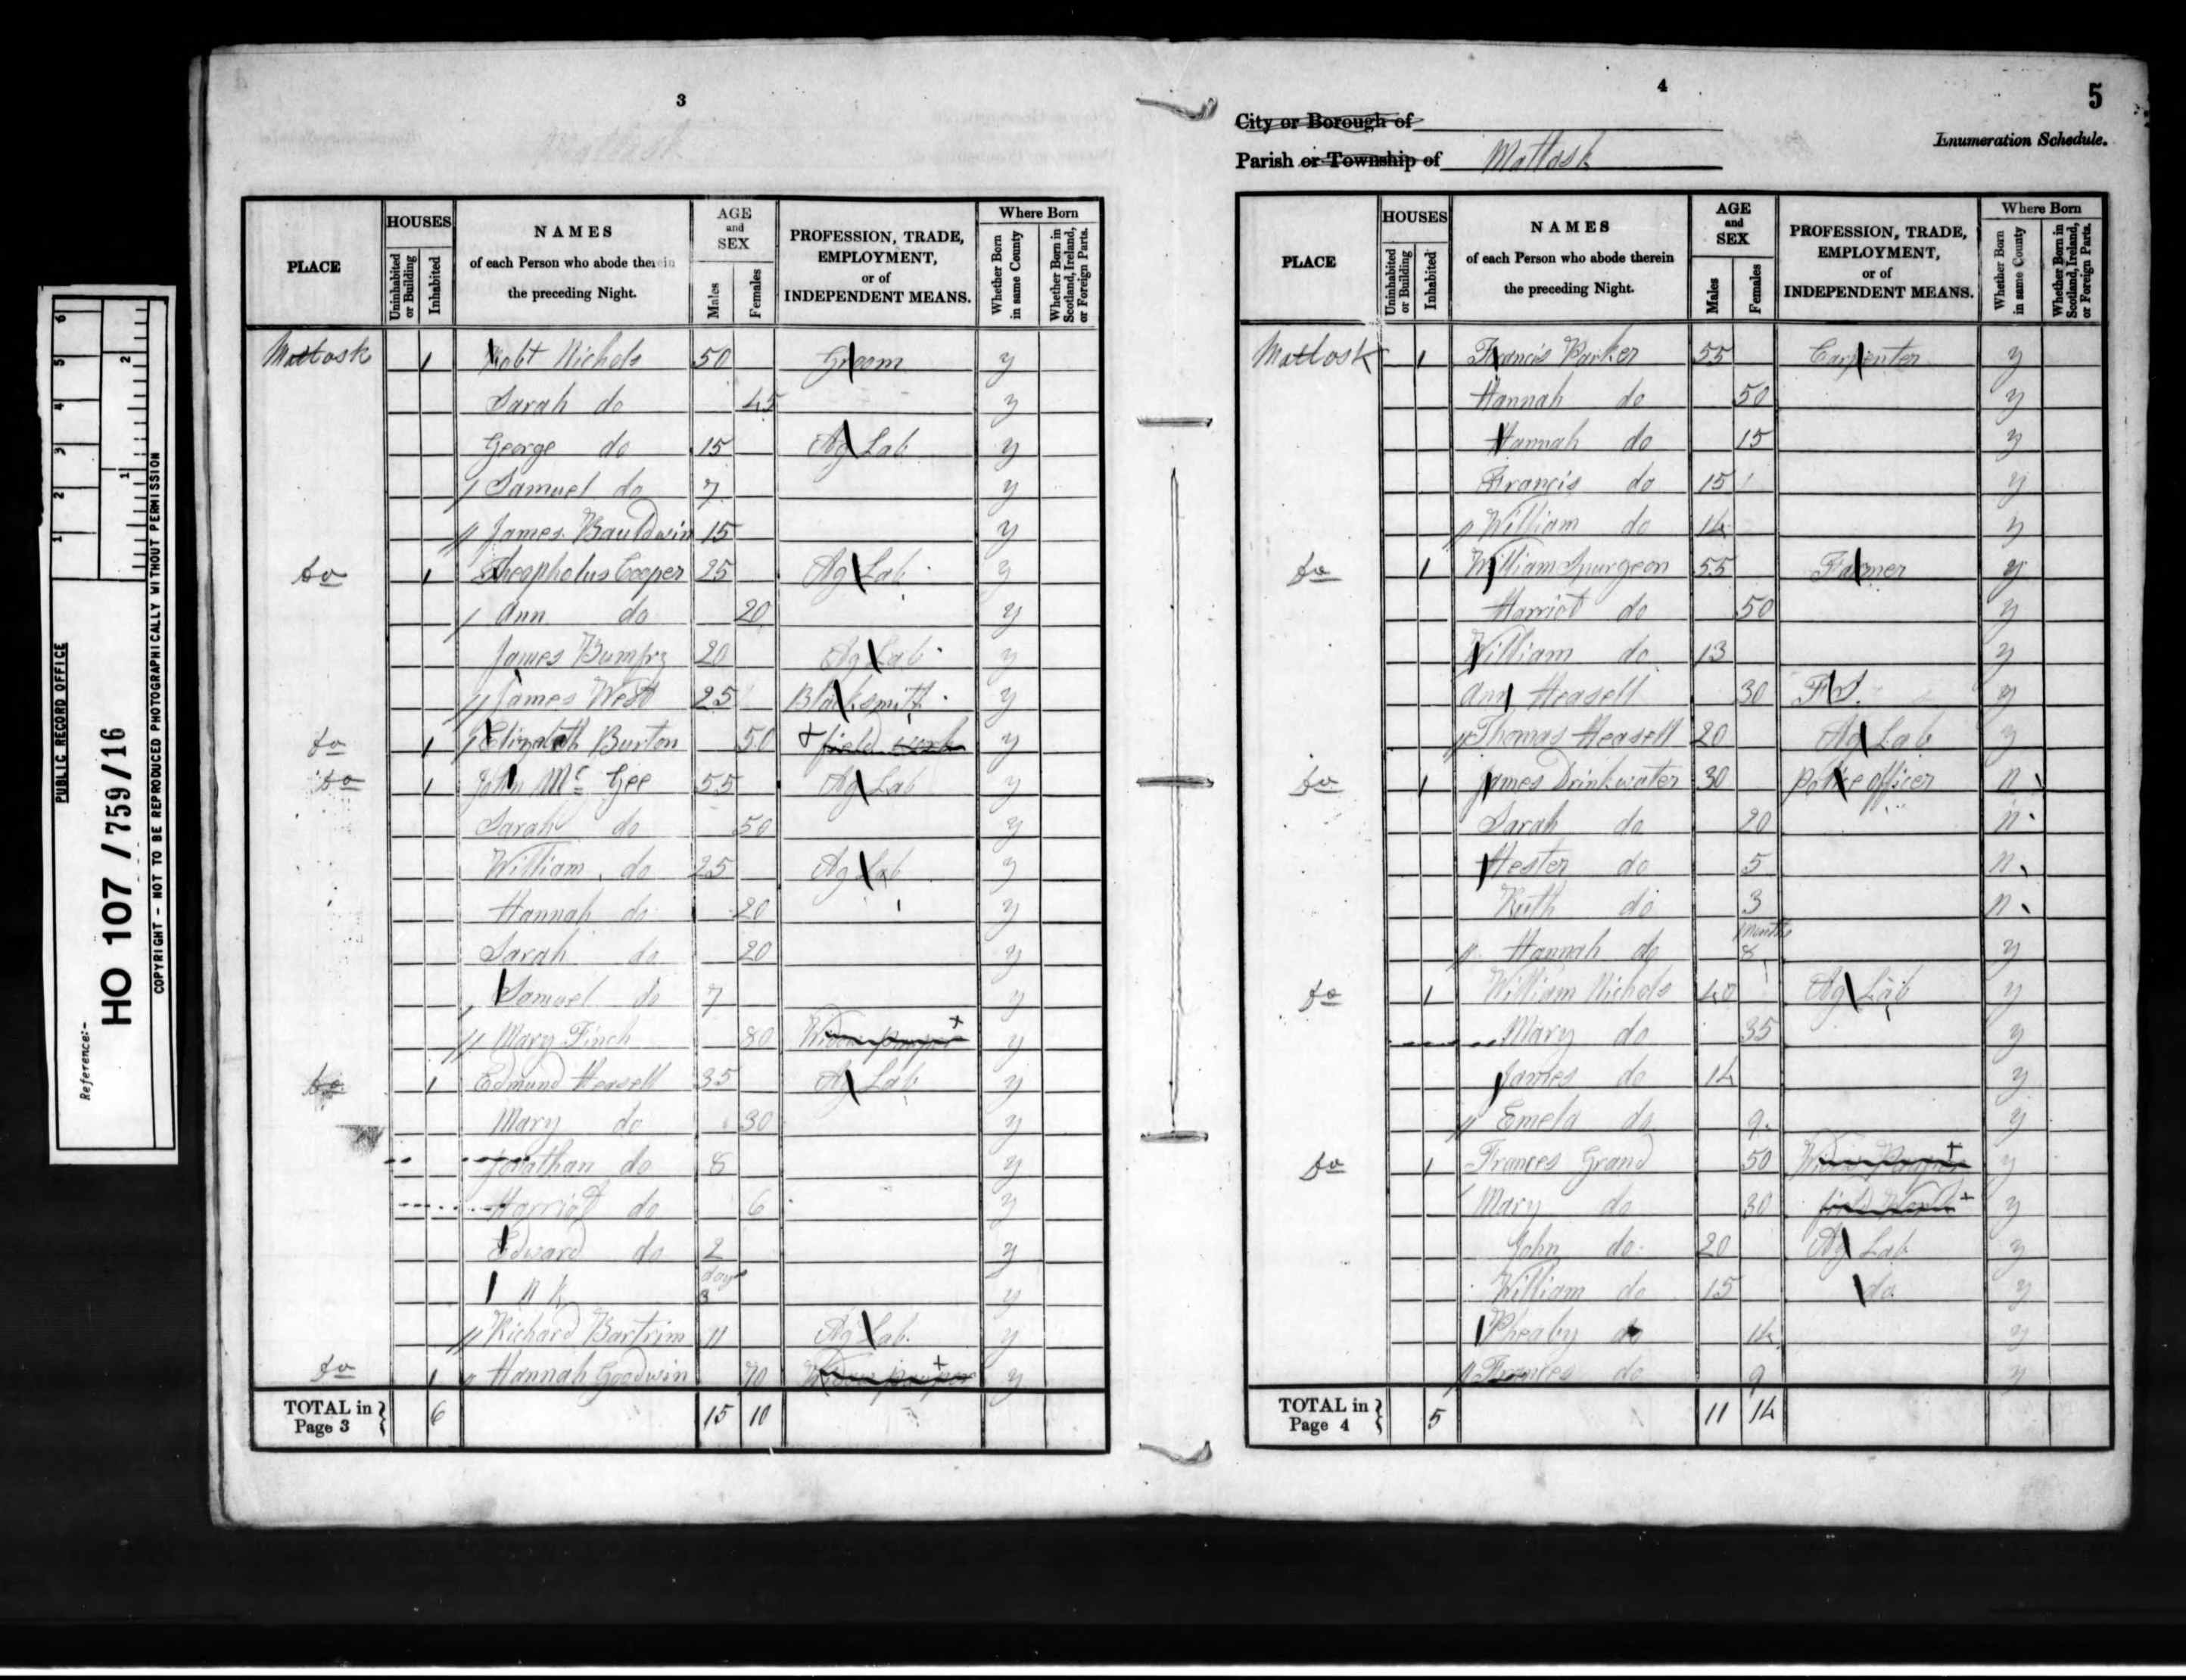 3
PLACE
HOUSES
Uninhabited or Building
Inhabited
NAMES
of each Person who abode therein
the preceding Night.
AGE
and
SEX
Males
Females
PROFESSION, TRADE,
EMPLOYMENT,
or of
INDEPENDENT MEANS.
Where Born
Whether Born in same County
Whether Born in Scotland, Ireland, or Foreign Parts.
Matlosk 1 Robt Nichols 50 Groom y
Sarah do 45 y
George do 15 Ag Lab y
Samuel do 7 y
James Bauldwin 15 y
do 1 Theopholus Cooper 25 Ag Lab y
Ann do 20 y
James Bumfrz 20 Ag Lab y
James West 25 Blacksmith y
do 1 Elizabeth Burton 50 field work y
do 1 John Mc Gee 55 Ag Lab y
Sarah do 50 y
William do 25 Ag Lab y
Hannah do 20 y
Sarah do 20 y
Samuel do 7 y
Mary Finch 80 Widow pauper y
do 1 Edmund Heasell 35 Ag Lab y
Mary do 30 y
Jonathan do 8 y
Harriot do 6 y
Edward do 2 y
n k days 3 y
Richard Bartrim 11 Ag Lab y
do 1 Hannah Goodwin 70 Widow pauper y
TOTAL in Page 3 6 15 10
4
5
City or Borough of
Parish or Township of Matlask
Enumeration Schedule.
PLACE
HOUSES
Uninhabited or Building
Inhabited
NAMES
of each Person who abode therein
the preceding Night.
AGE
and
SEX
Males
Females
PROFESSION, TRADE,
EMPLOYMENT,
or of
INDEPENDENT MEANS.
Where Born
Whether Born in same County
Whether Born in Scotland, Ireland, or Foreign Parts.
Matlosk 1 Francis Parker 55 Carpenter y
Hannah do 50 y
Hannah do 15 y
Francis do 15 y
William do 14 y
do 1 William Spurgeon 55 Farmer y
Harriot do 50 y
William do 13 y
Ann Heasell 30 F.S. y
Thomas Heasell 20 Ag Lab y
do 1 James Drinkwater 30 police officer n
Sarah do 20 n
Hester do 5 n
Ruth do 3 n
Hannah do Months 8 y
do 1 William Nichols 40 Ag Lab y
Mary do 35 y
James do 14 y
Emela do 9 y
do 1 Frances Grand 50 Widow Pauper y
Mary do 30 field Work y
John do 20 Ag Lab y
William do 15 do y
Pheaby do 14 y
Frances do 9 y
TOTAL in Page 4 5 11 14
PUBLIC RECORD OFFICE
Reference:-
HO 107 /759/16
COPYRIGHT - NOT TO BE REPRODUCED PHOTOGRAPHICALLY WITHOUT PERMISSION
1 2 3 4 5 6
1 2